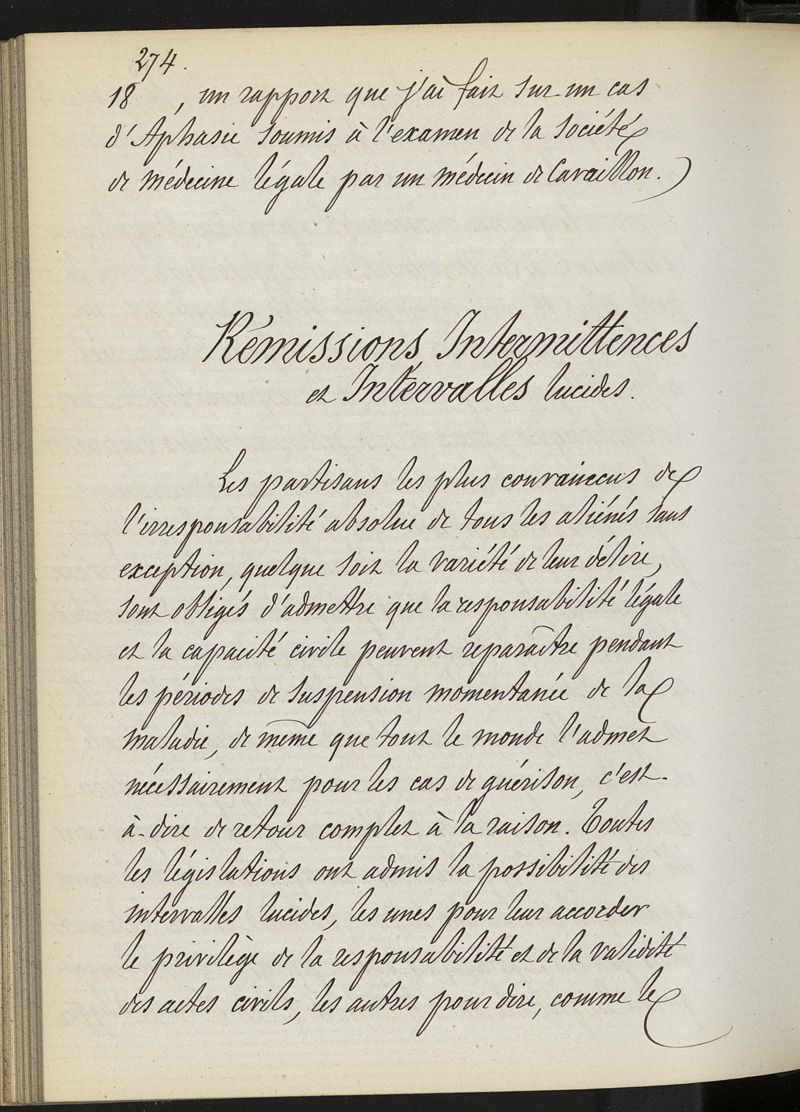 274.
18    , un rapport que j'ai fait sur un cas
d'Aphasie soumis à l'examen de la Société
de médecine légale par un médecin de Cavaillon. )
Rémissions, Intermittences
et Intervalles lucides.
Les partisans les plus convaincus de
l'irresponsabilité absolue de tous les aliénés sans
exception, quelque soit la variété de leur délire,
sont obligés d'admettre que la responsabilité légale
et la capacité civile peuvent reparaître pendant
les périodes de suspension momentanée de la
maladie, de même que tout le monde l'admet
nécessairement pour les cas de guérison, c'est-
à-dire de retour complet à la raison. Toutes
les législations ont admis la possibilité des
intervalles lucides, les unes pour leur accorder
le privilège de la responsabilité et de la validité
des actes civils, les autres pour dire, comme le